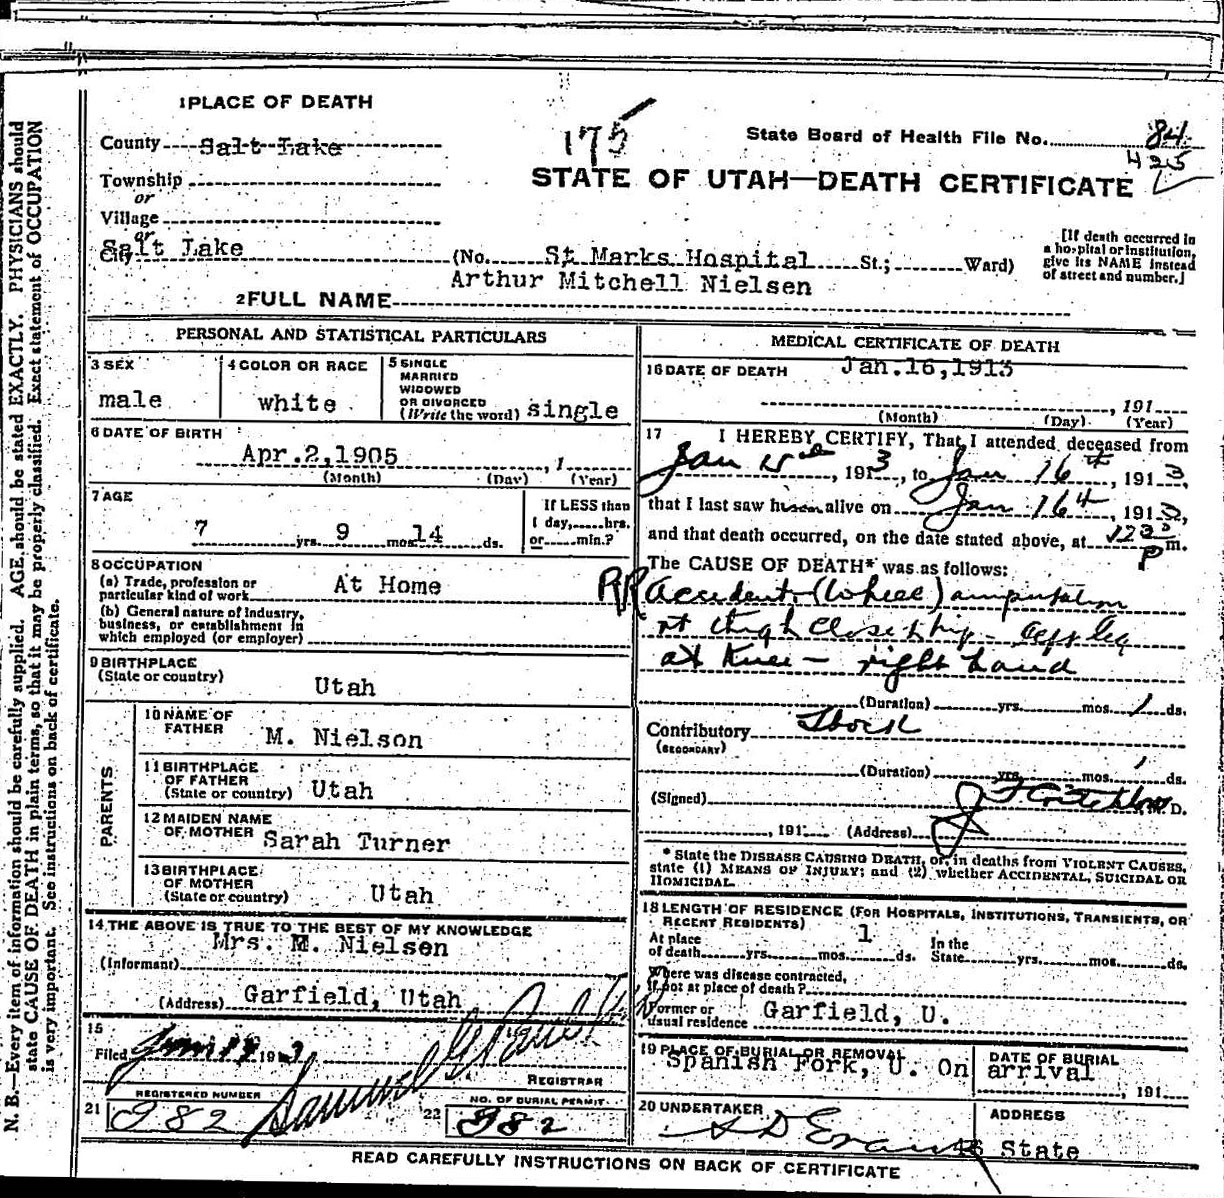 1 PLACE OF DEATH
County Salt Lake
Township
or
Village
or
City Salt Lake
175
State Board of Health File No. 84
425
STATE OF UTAH—DEATH CERTIFICATE
(No. St Marks Hospital St.; Ward)
[If death occurred in
a hospital or institution,
give its NAME instead
of street and number.]
2 FULL NAME Arthur Mitchell Nielsen
PERSONAL AND STATISTICAL PARTICULARS
3 SEX
male
4 COLOR OR RACE
white
5 SINGLE
MARRIED
WIDOWED
OR DIVORCED
(Write the word) single
6 DATE OF BIRTH
Apr.2,1905, 1
(Month) (Day) (Year)
7 AGE
7 yrs. 9 mos. 14 ds.
If LESS than
1 day,......hrs.
or......min.?
8 OCCUPATION
(a) Trade, profession or
particular kind of work At Home
(b) General nature of Industry,
business, or establishment in
which employed (or employer)
9 BIRTHPLACE
(State or country)
Utah
PARENTS
10 NAME OF
FATHER
M. Nielson
11 BIRTHPLACE
OF FATHER
(State or country) Utah
12 MAIDEN NAME
OF MOTHER Sarah Turner
13 BIRTHPLACE
OF MOTHER
(State or country) Utah
14 THE ABOVE IS TRUE TO THE BEST OF MY KNOWLEDGE
(Informant) Mrs. M. Nielsen
(Address) Garfield, Utah
15
Filed Jan 191 3
Samuel G Paul
REGISTRAR
REGISTERED NUMBER
21 982
NO. OF BURIAL PERMIT
22 982
MEDICAL CERTIFICATE OF DEATH
16 DATE OF DEATH Jan.16,1913
, 191
(Month) (Day) (Year)
17 I HEREBY CERTIFY, That I attended deceased from
Jan, 1913, to Jan 16th, 1913,
that I last saw him alive on Jan 16th, 1913,
and that death occurred, on the date stated above, at m.
P
The CAUSE OF DEATH* was as follows:
RR Accident (Wheel) amputation
rt thigh close hip - left leg
at Knee - right hand
(Duration) yrs. mos. 1 ds.
Contributory Shock
(SECONDARY)
(Duration) yrs. mos. 1 ds.
(Signed) J F Critchlow M. D.
, 191 (Address)
* State the DISEASE CAUSING DEATH, or, in deaths from VIOLENT CAUSES,
state (1) MEANS OF INJURY; and (2) whether ACCIDENTAL, SUICIDAL OR
HOMICIDAL.
18 LENGTH OF RESIDENCE (FOR HOSPITALS, INSTITUTIONS, TRANSIENTS, OR
RECENT RESIDENTS)
At place
of death yrs. mos. 1 ds.
In the
State yrs. mos. ds.
Where was disease contracted,
If not at place of death?
Former or
usual residence Garfield, U.
19 PLACE OF BURIAL OR REMOVAL
Spanish Fork, U. On
DATE OF BURIAL
arrival
191
20 UNDERTAKER
S D Evans
ADDRESS
46 State
READ CAREFULLY INSTRUCTIONS ON BACK OF CERTIFICATE
N. B.—Every item of information should be carefully supplied. AGE should be stated EXACTLY. PHYSICIANS should
state CAUSE OF DEATH in plain terms, so that it may be properly classified. Exact statement of OCCUPATION
is very important. See instructions on back of certificate.